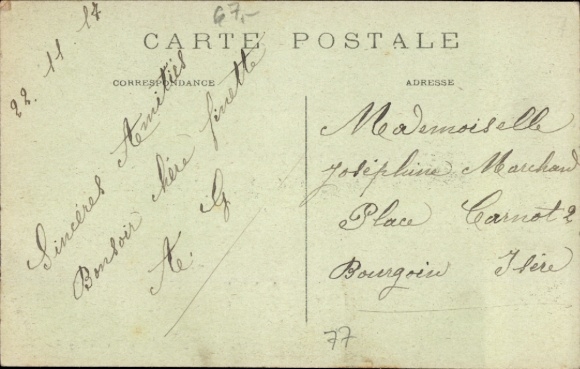 67,-
CARTE POSTALE
CORRESPONDANCE
ADRESSE
22. 11. 17
Sincères Amitiés
Bonsoir chère finette
A. G
Mademoiselle
Joséphine Marchand
Place Carnot 2
Bourgoin Isère
77